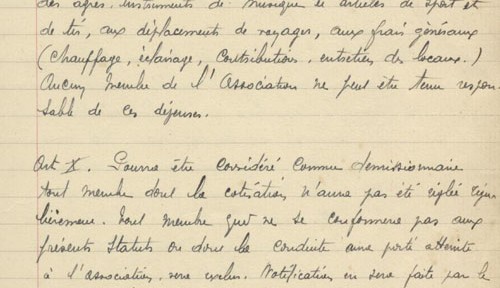 des agrès, instruments de musique et articles de sport et
de tir, aux déplacements de voyages, aux frais généraux
(Chauffage, éclairage, Contributions, entretien des locaux.)
Aucun membre de l'Association ne peut être tenu respon-
sable de ces dépenses.
Art X. Pourra être considéré comme demissionnaire
tout membre dont la cotisation n'aura pas été réglée régu-
lièrement. Tout membre qui ne se conformera pas aux
présents Statuts ou dont la conduite aura porté atteinte
à l'association, sera exclu. Notification en sera faite par le